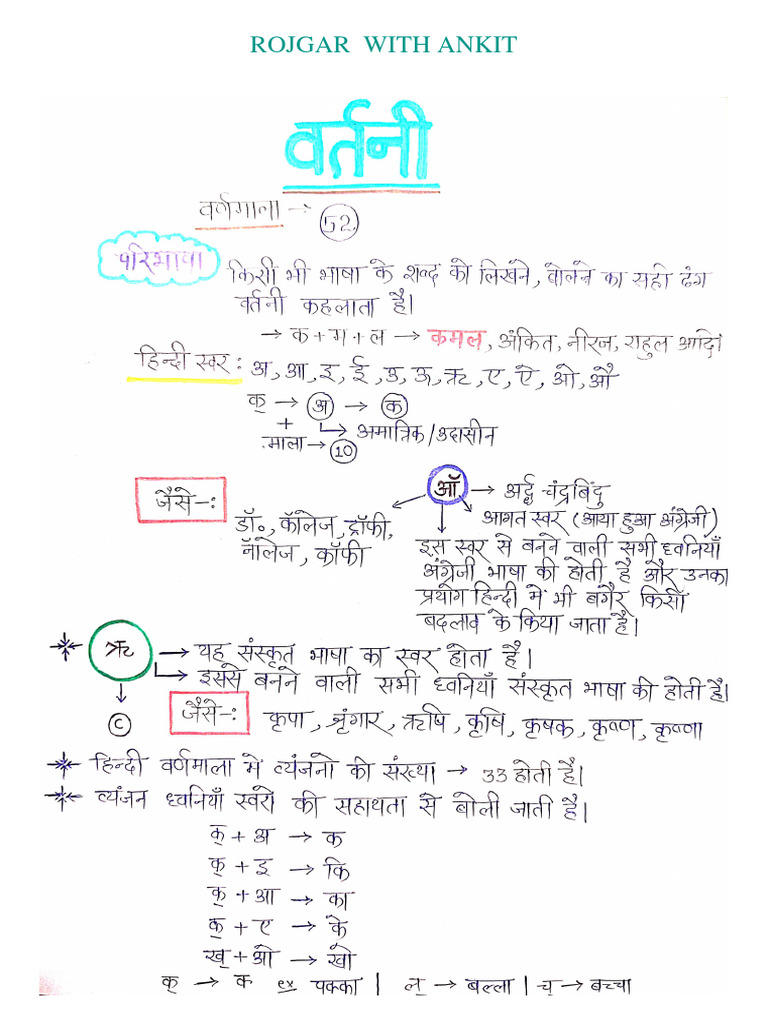 ROJGAR WITH ANKIT
वर्तनी
वर्णमाला → 52
परिभाषा
किसी भी भाषा के शब्द को लिखने, बोलने का सही ढंग
वर्तनी कहलाता है।
→ क + ग + ल → कमल, अंकित, नीरज, राहुल आदि।
हिन्दी स्वर : अ, आ, इ, ई, उ, ऊ, ऋ, ए, ऐ, ओ, औ
क् → अ → क
+ → अमात्रिक/उदासीन
माला → 10
जैसे -:
ऑ → अर्द्ध चंद्रबिंदु
आगत स्वर (आया हुआ अंग्रेजी)
डॉ॰, कॉलेज, ट्रॉफी,
नॉलेज, कॉफी
इस स्वर से बनने वाली सभी ध्वनियाँ
अंग्रेजी भाषा की होती है और उनका
प्रयोग हिन्दी में भी बगैर किसी
बदलाव के किया जाता है।
ऋ → यह संस्कृत भाषा का स्वर होता है।
→ इससे बनने वाली सभी ध्वनियाँ संस्कृत भाषा की होती है।
C
जैसे -: कृपा, श्रृंगार, ऋषि, कृषि, कृषक, कृष्ण, कृष्णा
हिन्दी वर्णमाला में व्यंजनो की संख्या → 33 होती है।
व्यंजन ध्वनियाँ स्वरो की सहायता से बोली जाती है।
क् + अ → क
क् + इ → कि
क् + आ → का
क् + ए → के
ख् + ओ → खो
क् → क ex पक्का | ल् → बल्ला | च् → बच्चा